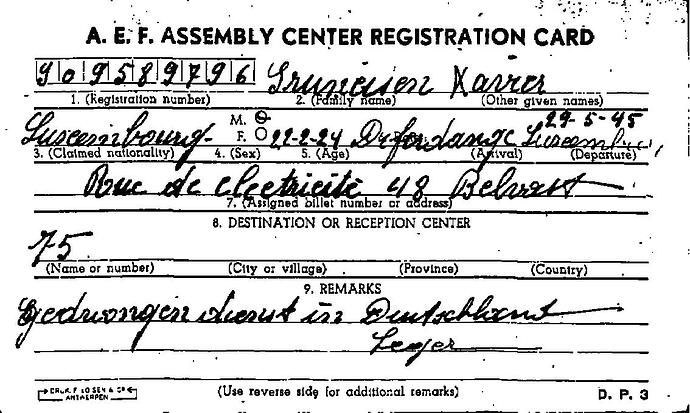 A. E. F. ASSEMBLY CENTER REGISTRATION CARD
9 0 9 5 8 9 7 9 6 Xavier
1. (Registration number) 2. (Family name) (Other given names)
M. O 29-5-45
Luxembourg F. O 22-2-24 Diferdange
3. (Claimed nationality) 4. (Sex) 5. (Age) (Arrival) (Departure)
Rue de electricité 48 Belvast
7. (Assigned billet number or address)
8. DESTINATION OR RECEPTION CENTER
75
(Name or number) (City or village) (Province) (Country)
9. REMARKS
Gedwongen dienst in Deutschland
Leger
(Use reverse side for additional remarks) D. P. 3
ANTWERPEN